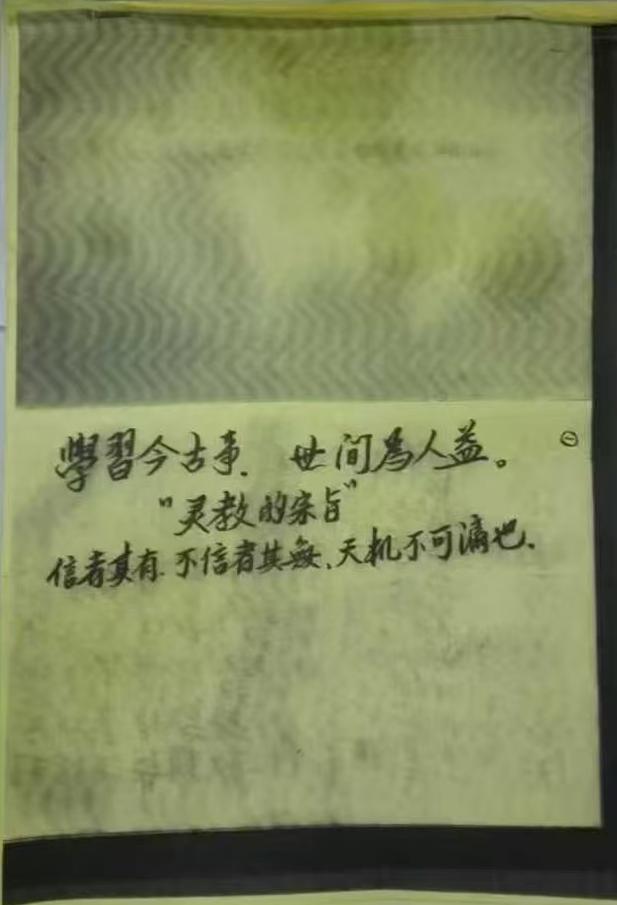 學習今古事.世间為人益。 ㊀
"灵教的宗旨"
信者其有.不信者其無、天机不可漏也.